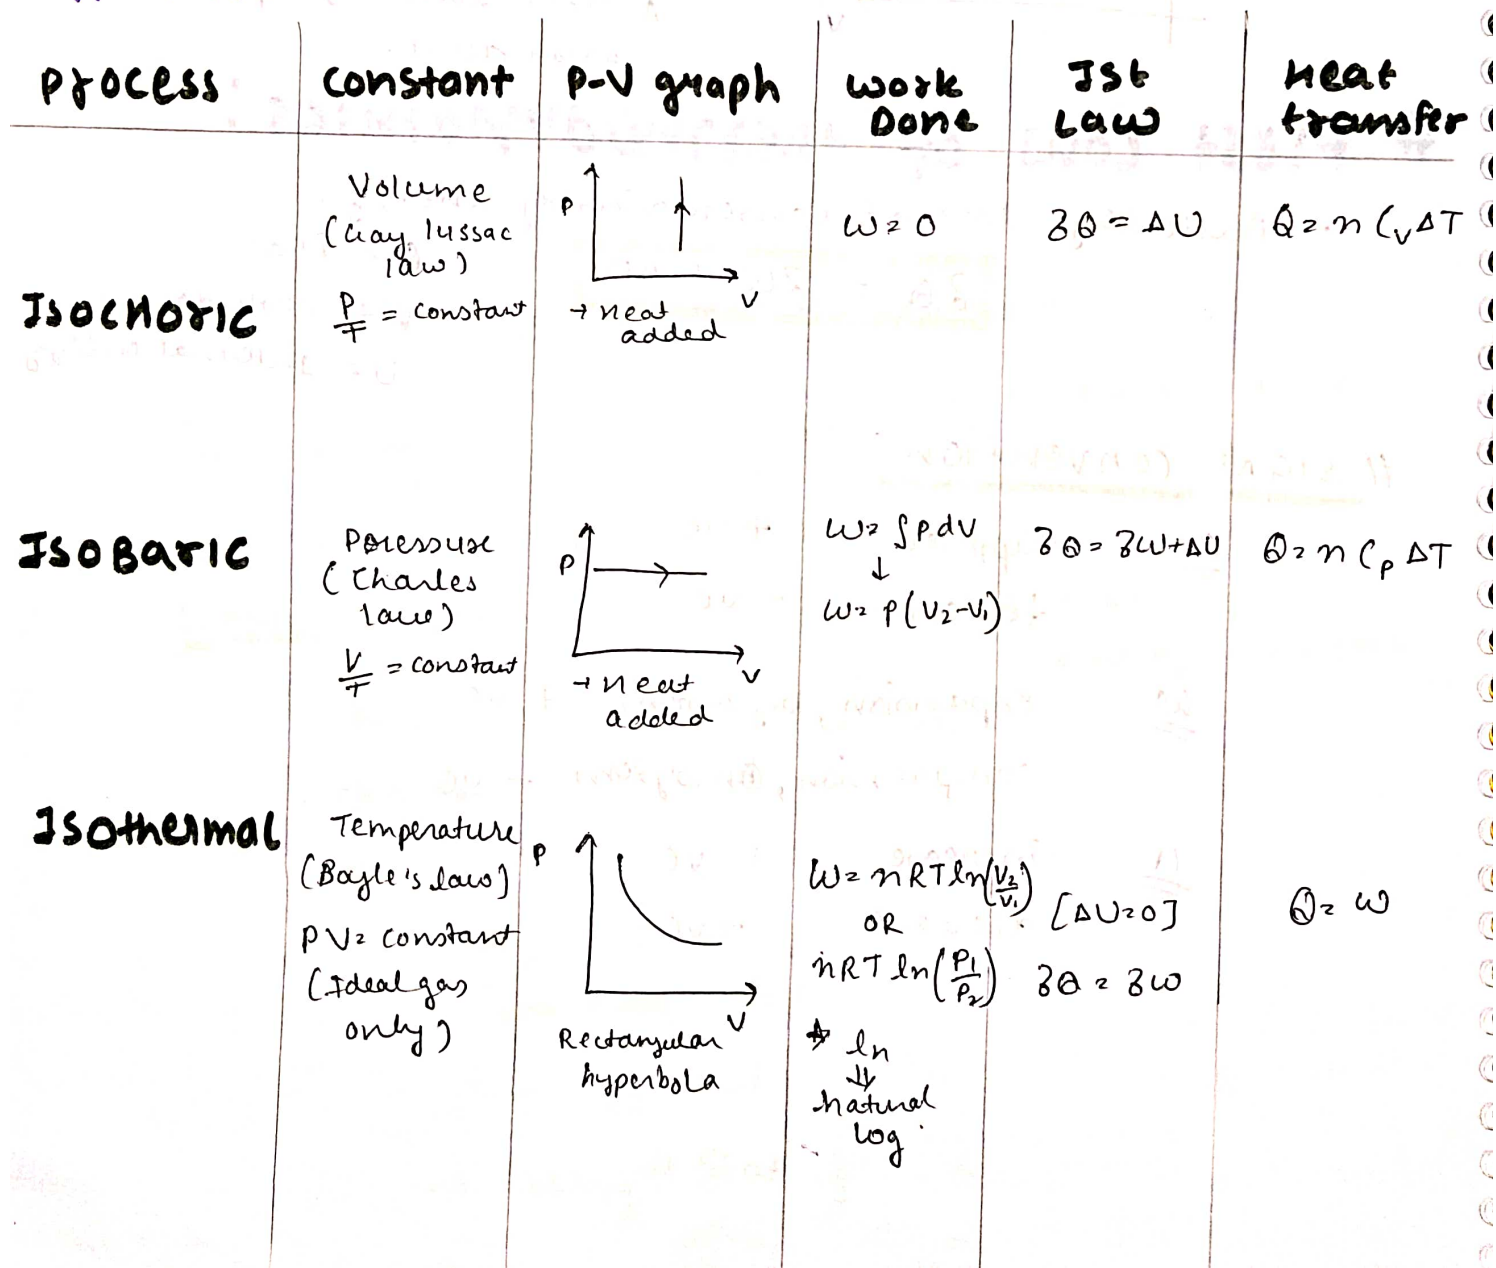 Process
constant
P-V graph
work
Done
Ist
Law
Heat
transfer
Isochoric
Volume
(Gay lussac
law)
P/T = constant
P
V
→ Heat
added
W = 0
δQ = ΔU
Q = n Cv ΔT
IsoBaric
Pressure
(Charles
law)
V/T = constant
P
V
→ Heat
added
W = ∫PdV
↓
W = P(V₂-V₁)
δQ = δW+ΔU
Q = n Cp ΔT
Isothermal
Temperature
(Boyle's law)
PV = constant
(Ideal gas
only)
P
V
Rectangular
hyperbola
W = nRT ln(V₂/V₁)
OR
nRT ln(P₁/P₂)
☆ ln
⇓
natural
log
[ΔU=0]
δQ = δW
Q = W